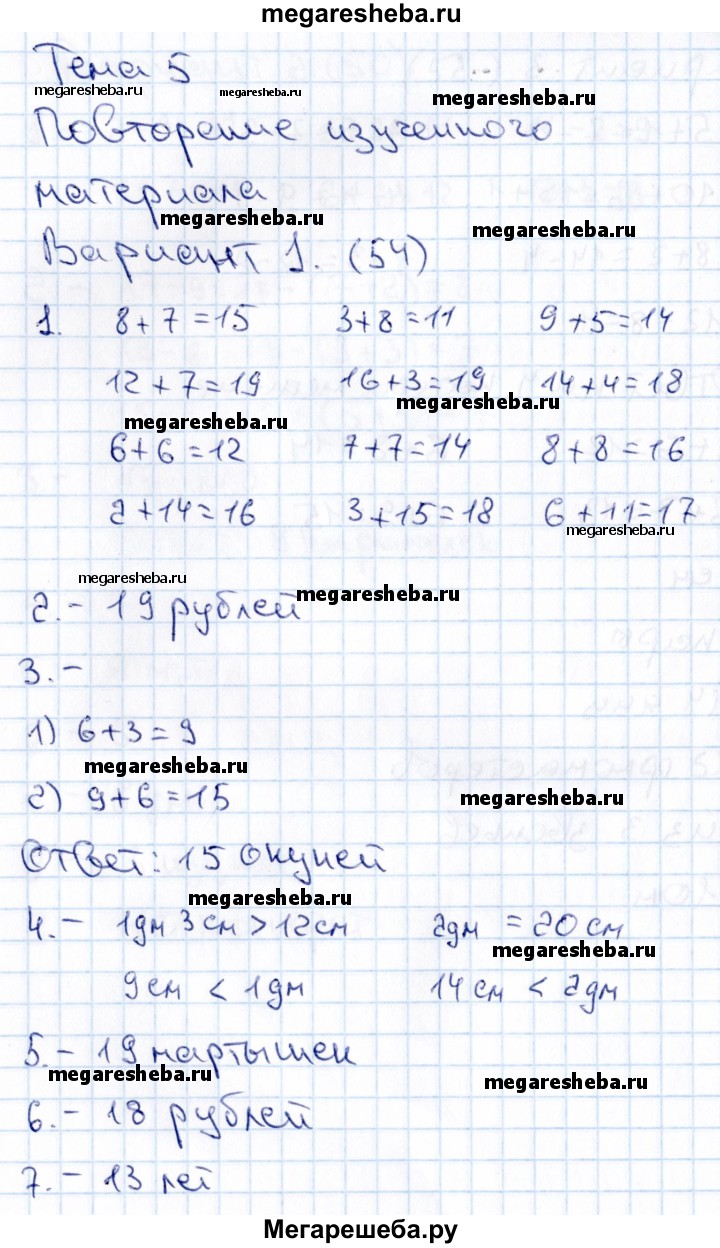 megaresheba.ru
Тема 5
megaresheba.ru megaresheba.ru megaresheba.ru
Повторение изученного
материала
megaresheba.ru megaresheba.ru
Вариант 1. (54)
1. 8+7=15 3+8=11 9+5=14
12+7=19 16+3=19 14+4=18
megaresheba.ru megaresheba.ru
6+6=12 7+7=14 8+8=16
2+14=16 3+15=18 6+11=17
megaresheba.ru
megaresheba.ru megaresheba.ru
2.- 19 рублей
3.-
1) 6+3=9
megaresheba.ru
2) 9+6=15 megaresheba.ru
Ответ: 15 окуней
megaresheba.ru
4.- 1дм 3см > 12см 2дм = 20см
megaresheba.ru
9см < 1дм 14см < 2дм
5.- 19 мартышек
megaresheba.ru megaresheba.ru
6.- 18 рублей
7.- 13 лет
Мегарешеба.ру